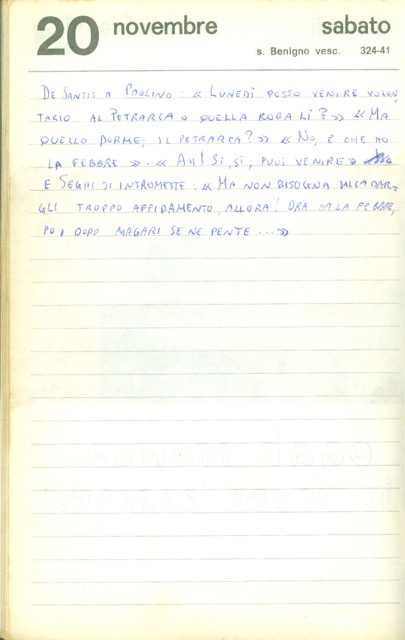 20 novembre sabato
s. Benigno vesc. 324-41
DE SANTIS A PAOLINO: « LUNEDÌ POSSO VENIRE VOLON
TARIO AL PETRARCA O QUELLA ROBA LÌ? » « MA
QUELLO DORME, IL PETRARCA? » « NO, È CHE HO
LA FEBBRE ». « AH! SI, SI, PUOI VENIRE »
E SEGHI SI INTROMETTE: « MA NON BISOGNA MICA DAR=
GLI TROPPO AFFIDAMENTO, ALLORA! ORA HA LA FEBBRE,
POI DOPO MAGARI SE NE PENTE ... »